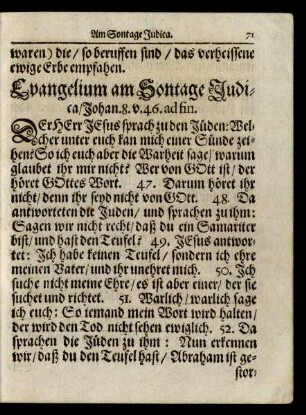 Am Sontage Judica. 71
waren) die/ so beruffen sind/ das verheissene
ewige Erbe empfahen.
Evangelium am Sontage Judi-
ca/Johan. 8. v. 46. ad fin.
DEr HErr JEsus sprach zu den Jüden: Wel-
cher unter euch kan mich einer Sünde zei-
hen? So ich euch aber die Warheit sage/ warum
glaubet ihr mir nicht? Wer von GOtt ist/ der
höret GOttes Wort. 47. Darum höret ihr
nicht/ denn ihr seyd nicht von GOtt. 48. Da
antworteten die Juden/ und sprachen zu ihm:
Sagen wir nicht recht/ daß du ein Samariter
bist/ und hast den Teufel? 49. JEsus antwor-
tet: Ich habe keinen Teufel/ sondern ich ehre
meinen Vater/ und ihr unehret mich. 50. Ich
suche nicht meine Ehre/ es ist aber einer/ der sie
suchet und richtet. 51. Warlich/ warlich sage
ich euch: So iemand mein Wort wird halten/
der wird den Tod nicht sehen ewiglich. 52. Da
sprachen die Jüden zu ihm: Nun erkennen
wir/ daß du den Teufel hast/ Abraham ist ge-
stor-